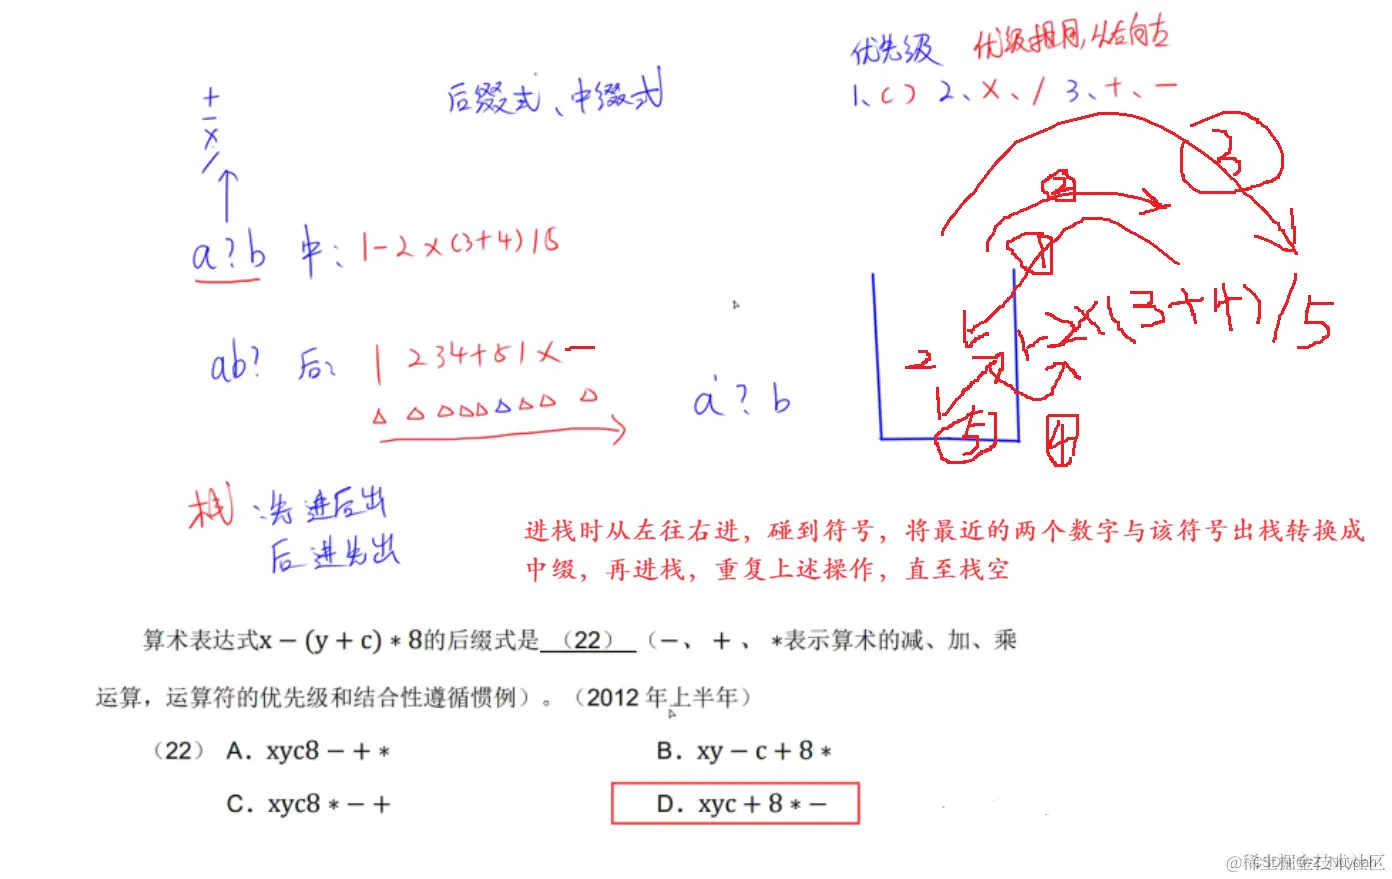 优先级 优级相同,从左向右
后缀式、中缀式
1、( ) 2、×、/ 3、+、-
+
-
×
/
3
2
1
a?b 中: 1-2×(3+4)/5
1-2×(3+4)/5
2
ab? 后: 1 234+5/×-
a?b
5
4
栈:先进后出
后进先出
进栈时从左往右进，碰到符号，将最近的两个数字与该符号出栈转换成
中缀，再进栈，重复上述操作，直至栈空
算术表达式x－(y＋c)＊8的后缀式是 （22） （－、＋、＊表示算术的减、加、乘
运算，运算符的优先级和结合性遵循惯例）。（2012 年上半年）
（22） A．xyc8－＋＊ B．xy－c＋8＊
C．xyc8＊－＋ D．xyc＋8＊－
@稀土掘金技术社区